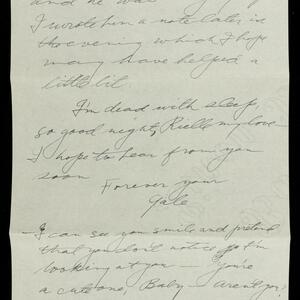 and he was
I wrote him a note later in
the evening which I hope
may have helped a
little bit.
I'm dead with sleep,
so good night, Rielle my love—
I hope to hear from you
soon
Forever your
Gale
I can see you smile and pretend
that you don't notice
looking at you — You're
a cute one, Baby — aren't you?